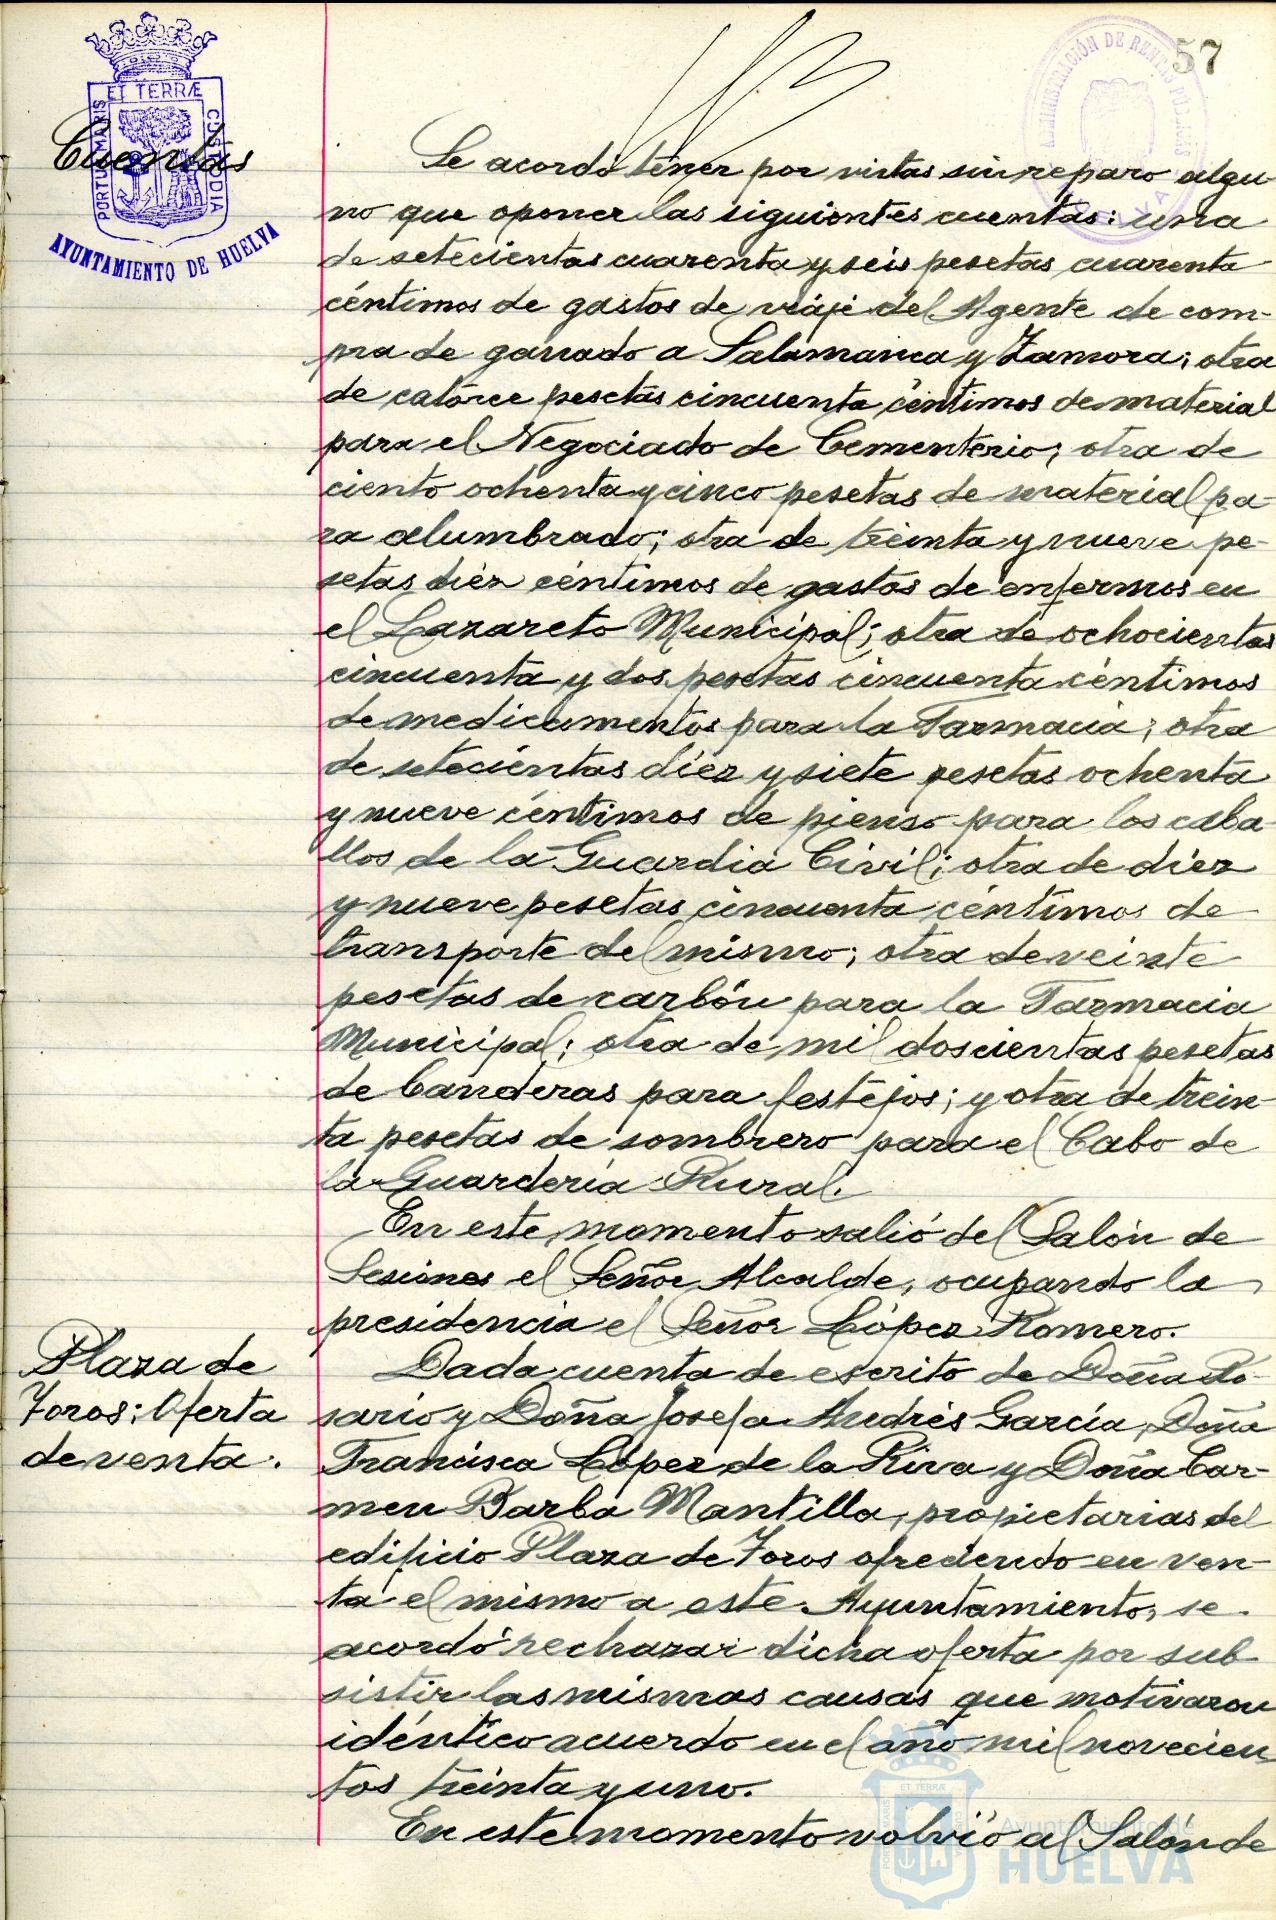 57
ADMINISTRACIÓN DE RENTAS PÚBLICAS
HUELVA
ET TERRÆ
PORTUS MARIS
CUSTODIA
AYUNTAMIENTO DE HUELVA
Cuentas
Se acordó tener por vistas sin reparo algu-
no que oponer las siguientes cuentas: una
de setecientas cuarenta y seis pesetas cuarenta
céntimos de gastos de viaje del Agente de com-
pra de ganado a Salamanca y Zamora; otra
de catorce pesetas cincuenta céntimos de material
para el Negociado de Cementerio; otra de
ciento ochenta y cinco pesetas de material pa-
ra alumbrado; otra de treinta y nueve pe-
setas diez céntimos de gastos de enfermos en
el Lazareto Municipal; otra de ochocientas
cincuenta y dos pesetas cincuenta céntimos
de medicamentos para la Farmacia; otra
de setecientas diez y siete pesetas ochenta
y nueve céntimos de pienso para los caba-
llos de la Guardia Civil; otra de diez
y nueve pesetas cincuenta céntimos de
transporte del mismo; otra de veinte
pesetas de carbón para la Farmacia
Municipal; otra de mil doscientas pesetas
de banderas para festejos; y otra de trein-
ta pesetas de sombrero para el Cabo de
la Guardería Rural.
En este momento salió del Salón de
Sesiones el Señor Alcalde, ocupando la
presidencia el Señor López Romero.
Plaza de
Toros: Oferta
de venta.
Dada cuenta de escrito de Doña Ro-
sario y Doña Josefa Andrés García, Doña
Francisca López de la Riva y Doña Car-
men Barba Mantilla, propietarias del
edificio Plaza de Toros ofreciendo en ven-
ta el mismo a este Ayuntamiento, se
acordó rechazar dicha oferta por sub-
sistir las mismas causas que motivaron
idéntico acuerdo en el año mil novecien
tos treinta y uno.
En este momento volvió al Salón de
Ayuntamiento de
HUELVA